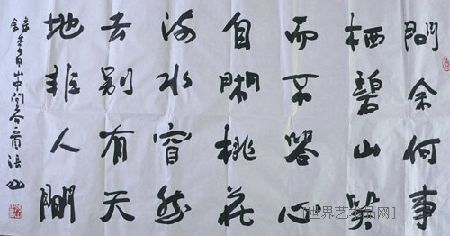 問余何事
栖碧山笑
而不答心
自閑桃花
流水窅然
去别有天
地非人間
李白山中问答
世界艺术品网